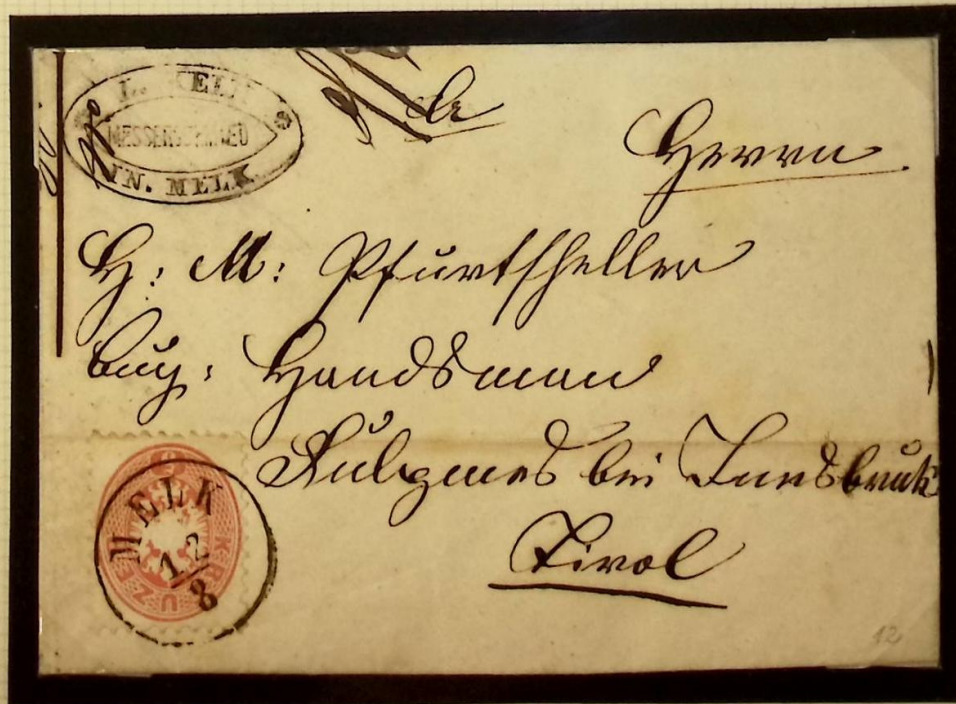 L. KELL
MESSERSCHMIED
IN. MELK
Herrn
H: M: Pfurtscheller
Handsman
Fulpmes bei Innsbruck
Tirol
KREUZER
MELK
12/8
12